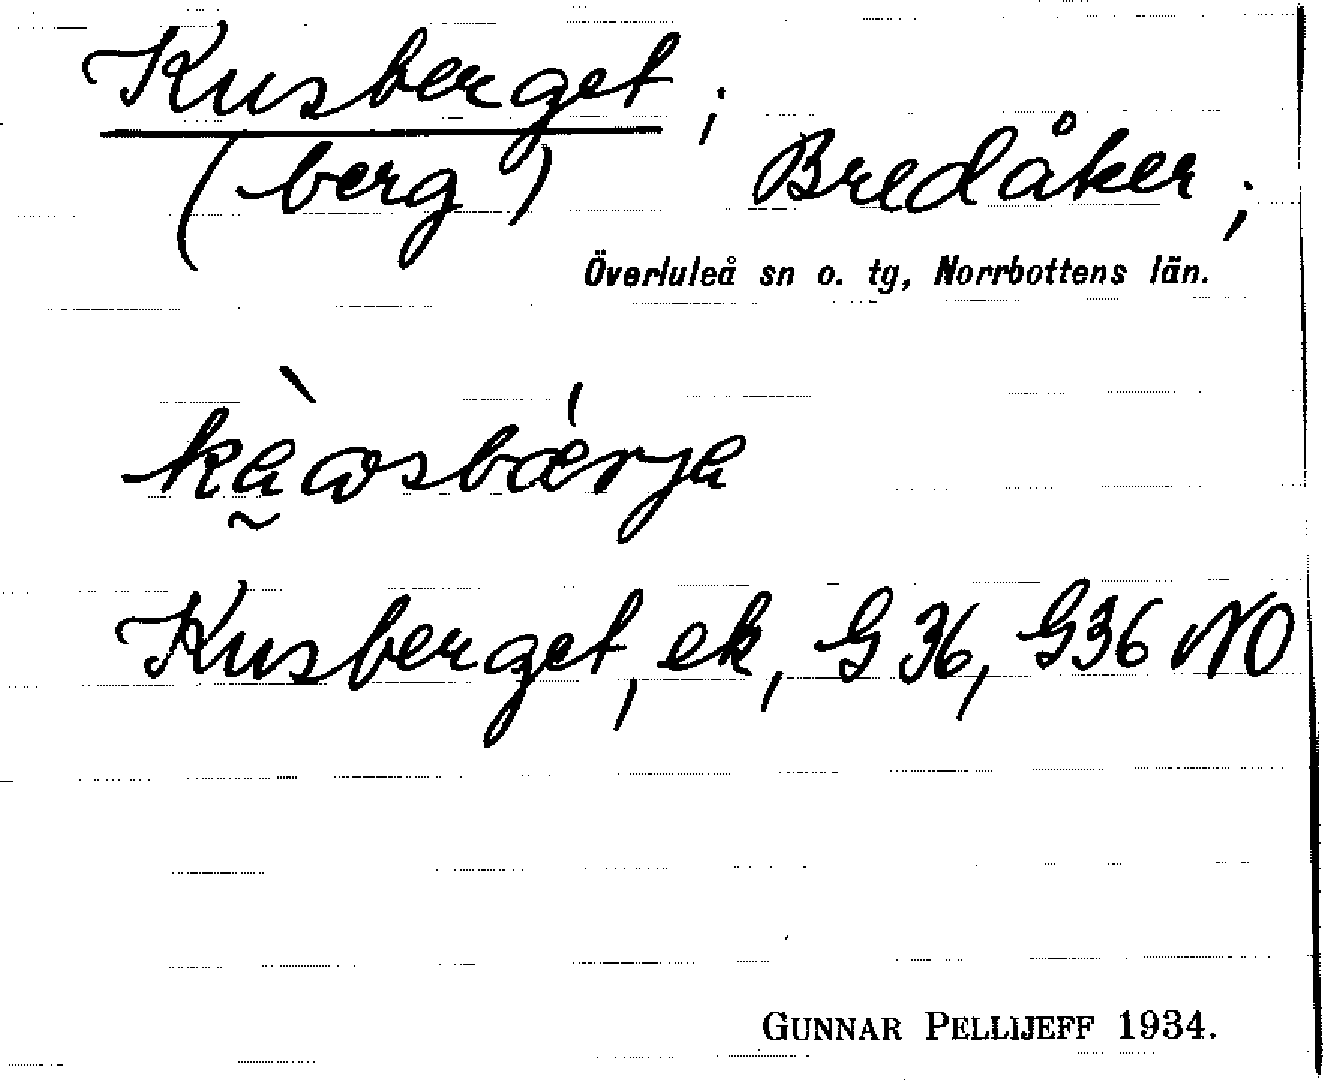 Kusberget;
(berg) Bredåker;
Överluleå sn o. tg, Norrbottens län.
Kusberget, ek, G 36, G36 NO
GUNNAR PELLIJEFF 1934.